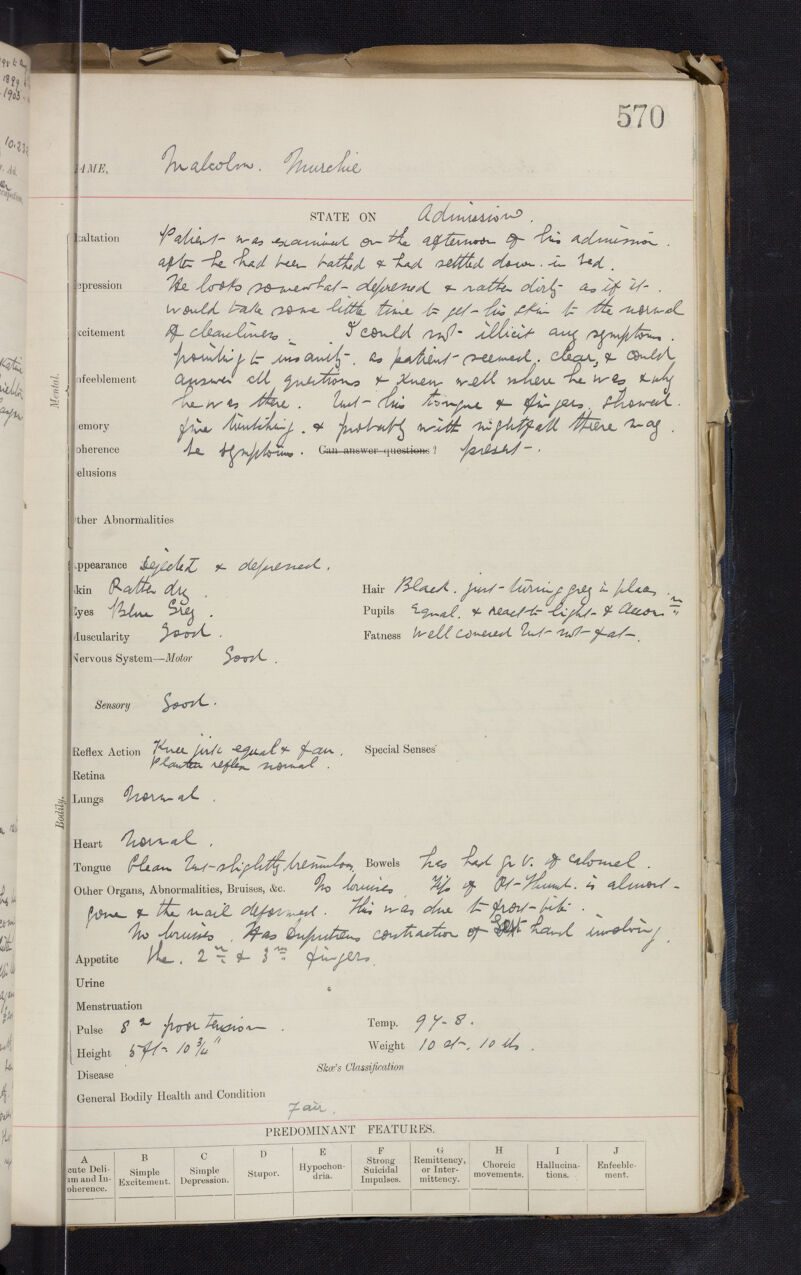 570
AME, Malcolm. Murchie
STATE ON Admission.
altation Patient was examined on the afternoon of his admission.
after he had been bathed & had settled down in bed.
epression He looks somewhat depressed & rather dirty as if it
would take some little time to get his skin to the normal
xcitement of cleanliness. I could not illicit any symptoms.
pointing to insanity. as patient seemed. clear, & could
nfeeblement answer all questions & knew well where he was & why
he was there. but his tongue & fingers showed.
emory fine . & probably with nightfall there may.
oherence be symptoms. Can answer questions? present.
elusions
ther Abnormalities
Mental.
ppearance Dejected & depressed.
kin Rather dry. Hair Black. just turning grey in places.
Eyes Blue Grey. Pupils Equal. & react to light & Accom n
Muscularity Good. Fatness Well covered but not fat.
Nervous System—Motor Good.
Sensory Good.
Reflex Action Knee jerk equal & fair. Special Senses
Plantar reflex normal.
Retina
Lungs Normal.
Bodily.
Heart Normal.
Tongue Clean but slightly tremulous Bowels has had gr V. of calomel.
Other Organs, Abnormalities, Bruises, &c. No bruises. Tip of Rt Thumb. is almost
gone & the nail deformed. This was due to frost-bite.
No bruises. Has contraction of hand involving.
Appetite the. 2 & 3 fingers.
Urine
Menstruation
Pulse 82 poor tension. Temp. 97-8.
Height 5 ft 10 3/4" Weight 10 st. 10 lbs.
Disease Skae's Classification
General Bodily Health and Condition
Fair.
PREDOMINANT FEATURES.
A cute Deli- um and In- oherence.
B Simple Excitement.
C Simple Depression.
D Stupor.
E Hypochon- dria.
F Strong Suicidal Impulses.
G Remittency, or Inter- mittency.
H Choreic movements.
I Hallucina- tions.
J Enfeeble- ment.